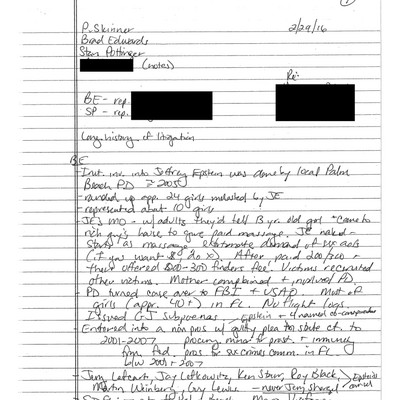 P. Skinner 2/29/16
Brad Edwards
Stan Pottinger
(notes)
Re:
BE - rep.
SP - rep.
Long history of litigation
BE
- Init. inv. into Jeffrey Epstein was done by local Palm
Beach PD ≈ 2005
- rounded up app. 24 girls molested by JE
- represented about 10 girls
- JE's MO - w/ adults they'd tell 13 yr. old girl "Come to
rich guy's house to give paid massage. JE naked -
starts as massage, demand of sex acts
(if you want $, do X). After paid 200/300 -
then offered $200-300 finders fee. Victims recruited
other victims. Mother complained + involved PD
PD turned case over to FBI + USAO. Most of
girls (appr. 40+) in FL. No flight logs.
Issued GJ subpoenas - Epstein + 4 named co-conspirators
Entered into a non pros w/ guilty plea to state ct. to
2001-2007 procuring minor to prost + immunity
from fed. pros for sex crimes comm. in FL
b/w 2001 + 2007
- Jay Lefkowitz, Ken Starr, Roy Black,
Martin Weinberg, Guy Lewis - never
Epstein's